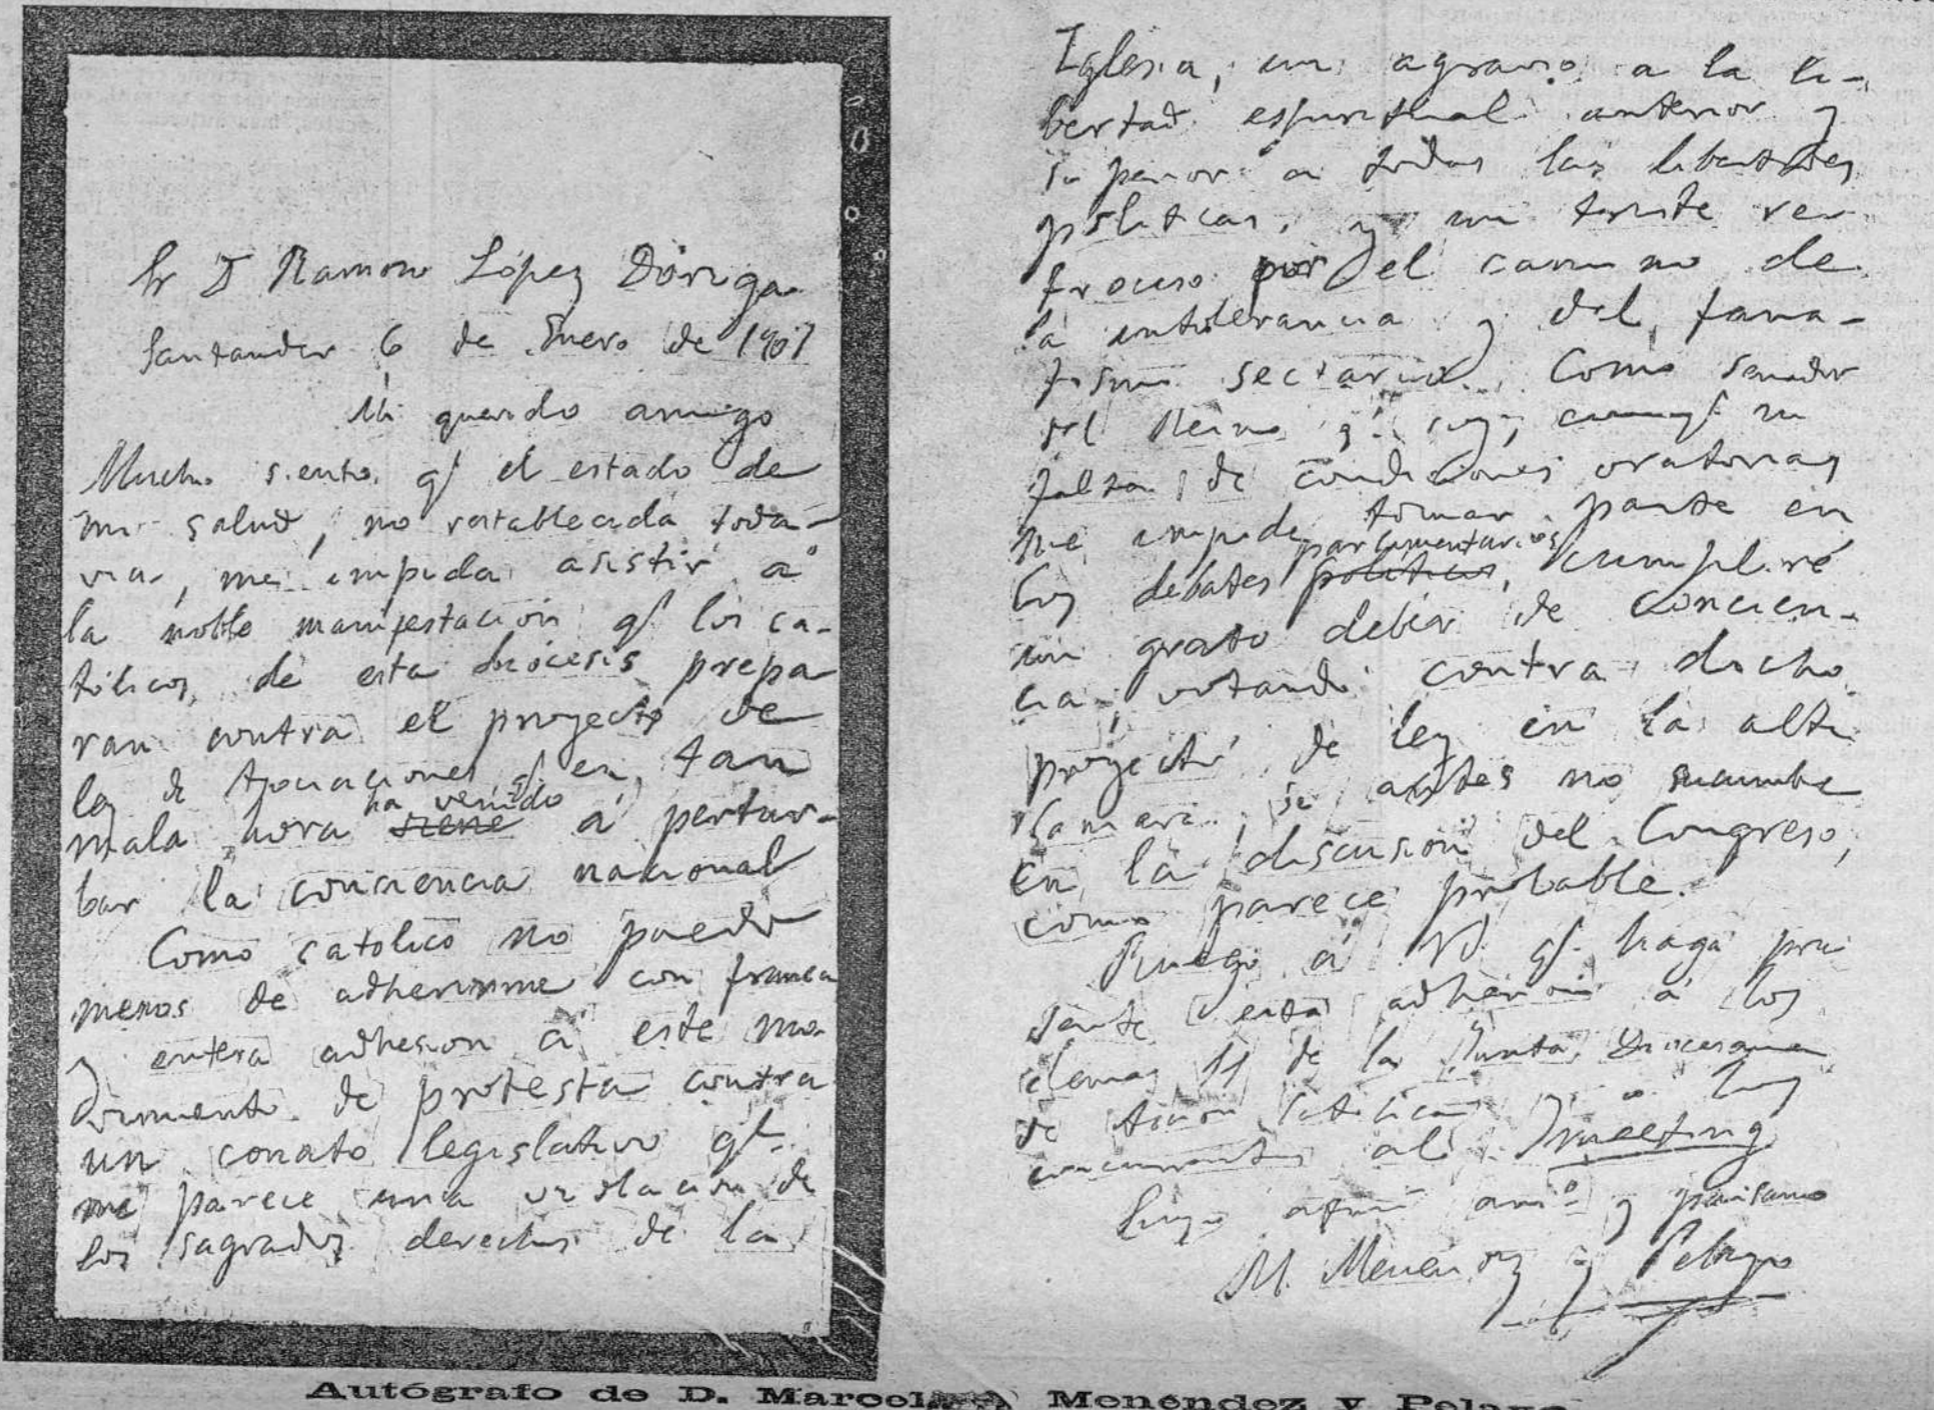 Sr D Ramon López Dóriga
Santander 6 de Enero de 1907
Mi querido amigo
Mucho siento qe el estado de
mi salud, no restablecida toda-
via, me impida asistir á
la noble manifestación qe los ca-
tólicos de esta diócesis prepa-
ran contra el proyecto de
ley de Asociaciones qe en tan
mala hora ha venido á pertur-
bar la conciencia nacional
Como catolico no puedo
menos de adherirme con franca
y entera adhesion á este mo-
vimiento de protesta contra
un conato legislativo qe
me parece una violacion de
los sagrados derechos de la
Iglesia, un agravio a la li-
bertad espiritual anterior y
superior a todas las libertades
politicas, y un triste re-
troceso por el camino de
la intolerancia y del fana-
tismo sectario. Como senador
del Reino qe soy, aunqe mi
falta de condiciones oratorias
me impide tomar parte en
los debates parlamentarios, cumpliré
un grato deber de concien-
cia, votando contra dicho
proyecto de ley en la alta
Camara, si antes no sucumbe
en la discusion del Congreso,
como parece probable.
Ruego á Vd. qe haga pre
sente esta adhesion á los
demas SS de la Junta Diocesana
de Accion Católica y a los
concurrentes al meeting
Suyo afmo amo y paisano
M. Menendez y Pelayo
Autógrafo de D. Marcelino Menéndez y Pelayo